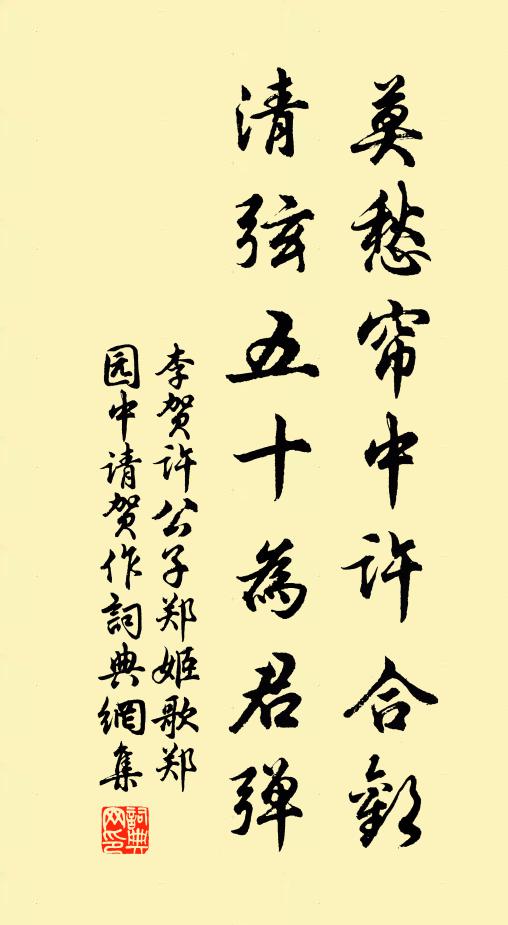 莫愁帘中许合歡
清弦五十為君弹
李贺许公子郑姬歌郑
园中请贺作詞典網集
詞典网印